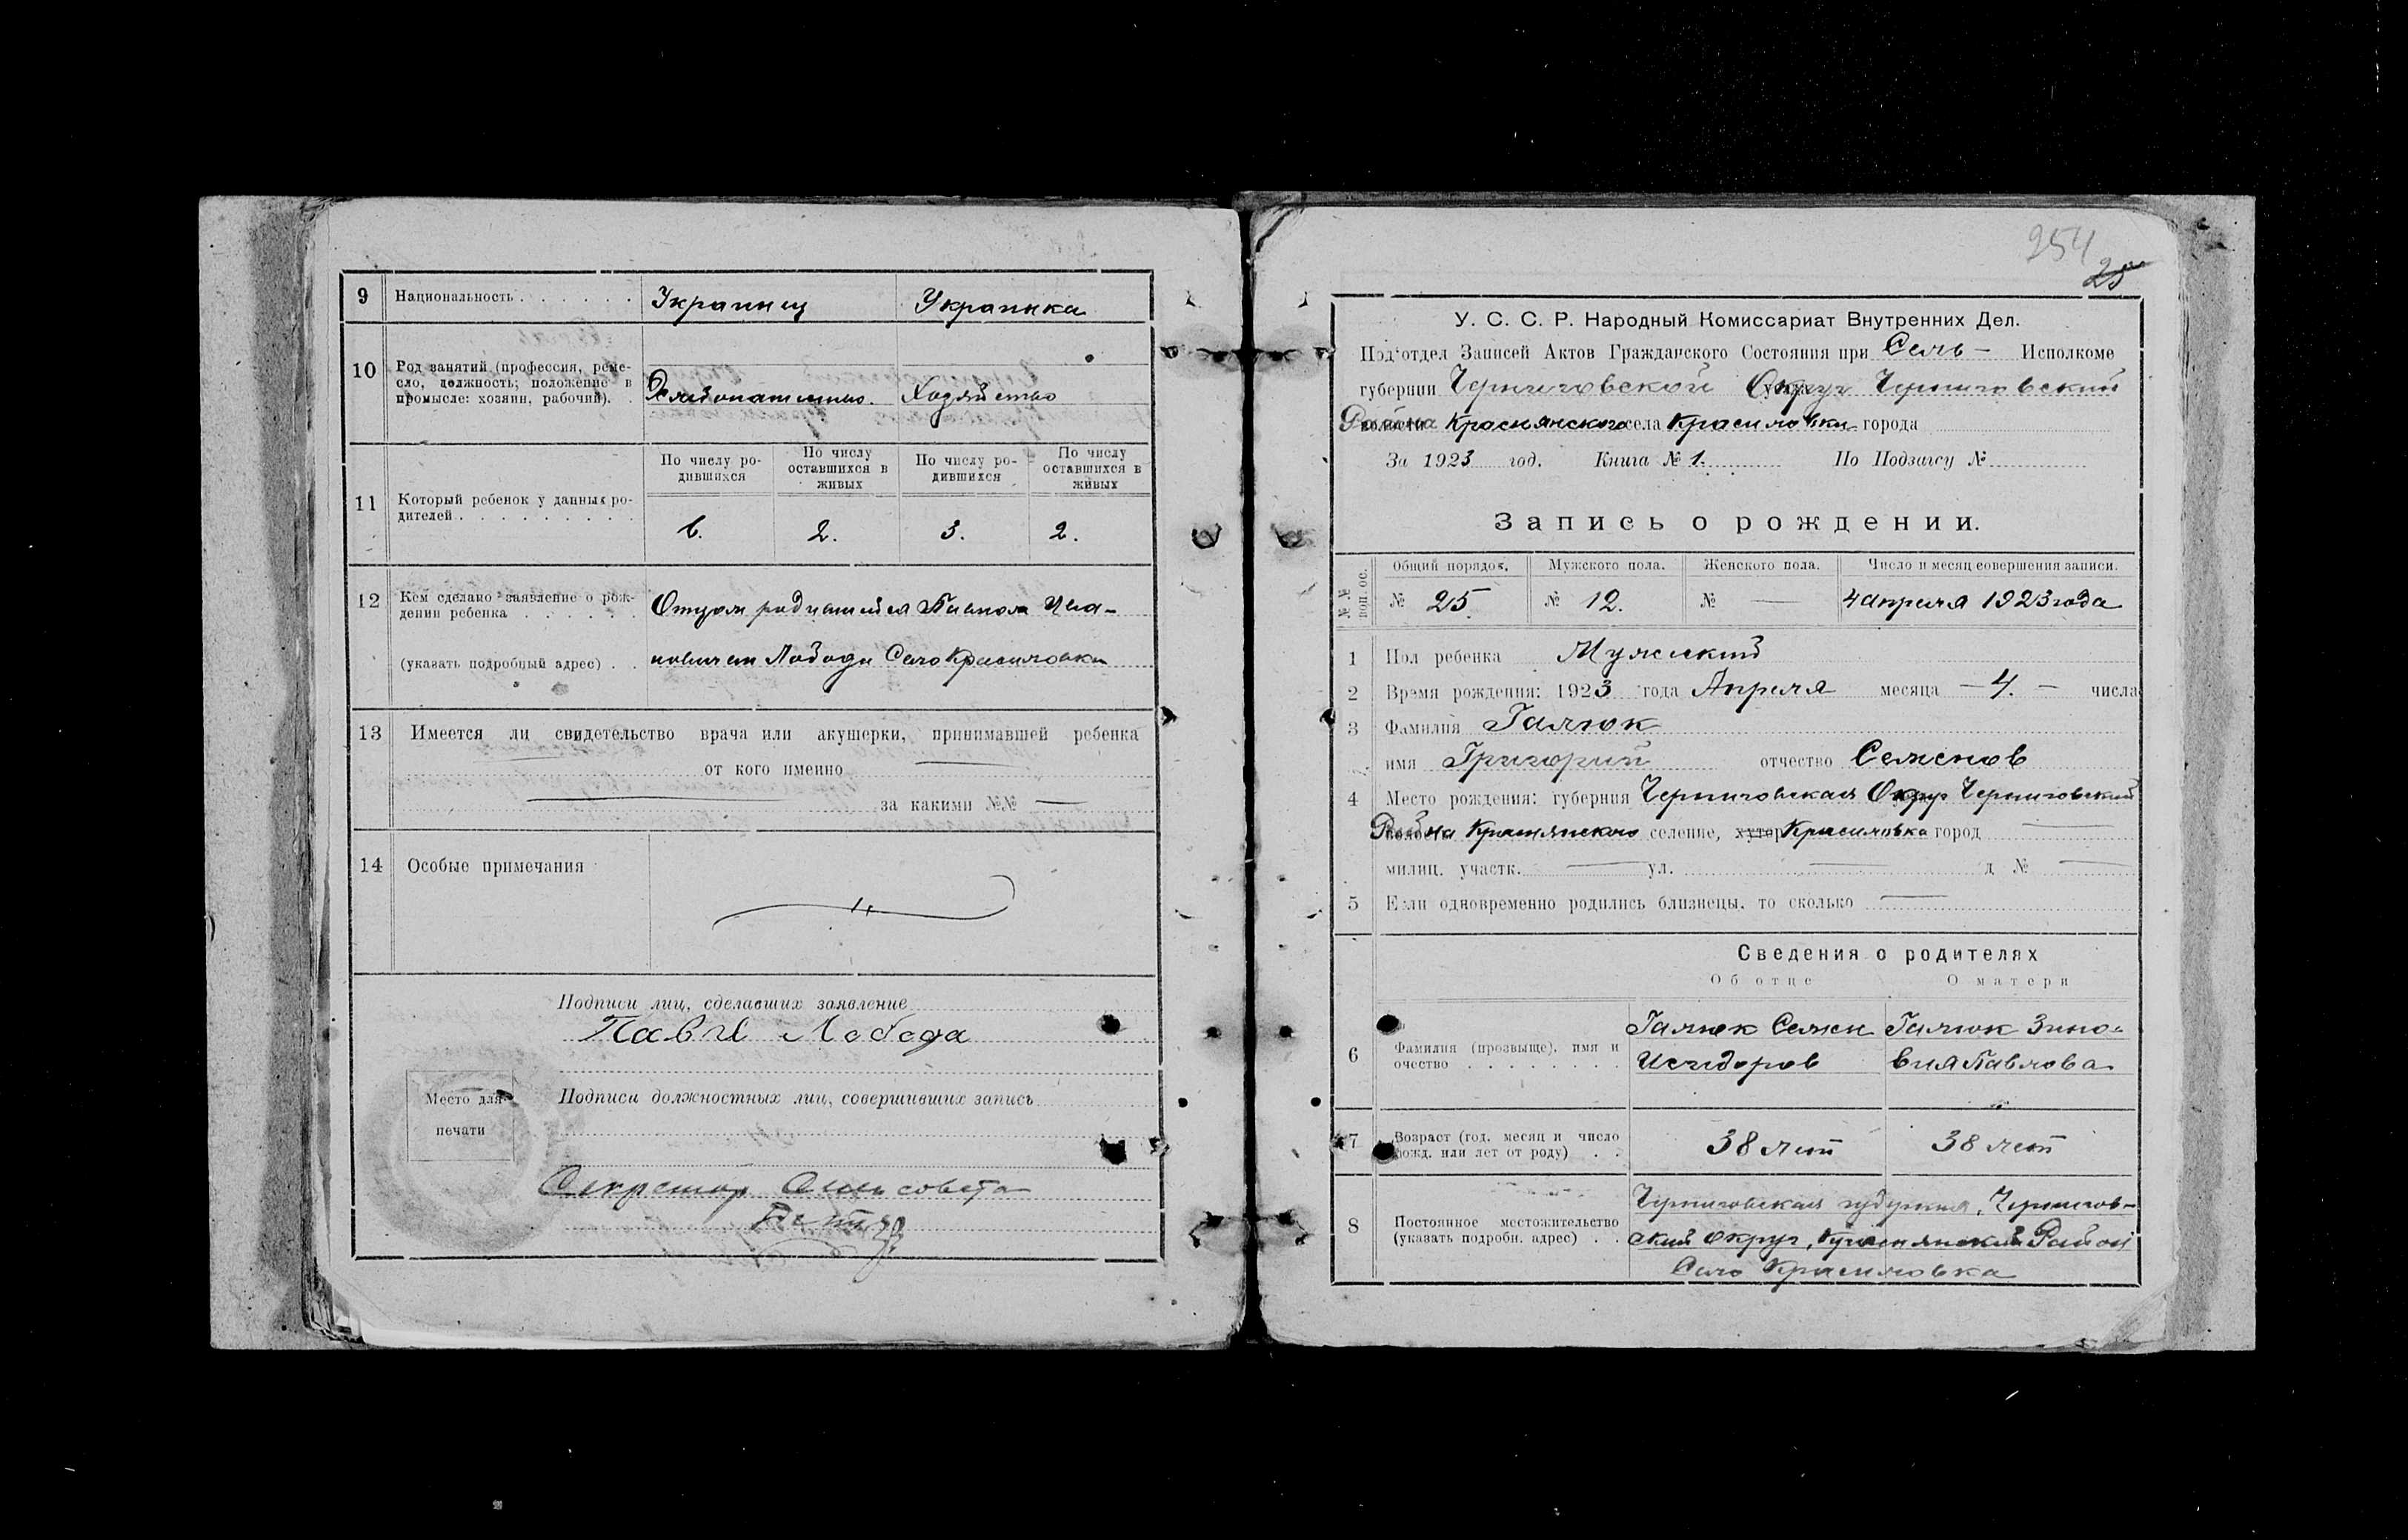 9 Национальность . . . . . . Украинец Украинка
10 Род занятий (профессия, реме-
сло, должность; положение в
промысле: хозяин, рабочий). . Хлебопашество. Хозяйство
11 Который ребенок у данных ро-
дителей . . . . . . . . .
По числу ро-
дившихся
По числу
оставшихся в
живых
По числу ро-
дившихся
По числу
оставшихся в
живых
6. 2. 3. 2.
12 Кем сделано заявление о рож-
дении ребенка . . . . . .
(указать подробный адрес) . .
Отцом родившейся Павлом Ива-
новичем Лободы Село Красиловки
13 Имеется ли свидетельство врача или акушерки, принимавшей ребенка
от кого именно —
— за какими №№ —
14 Особые примечания
Подписи лиц, сделавших заявление
Павил Лобода
Место для
печати
Подписи должностных лиц, совершивших запись
Секретар Сельсовета
254
25
У. С. С. Р. Народный Комиссариат Внутренних Дел.
Подотдел Записей Актов Гражданского Состояния при Сель- Исполкоме
губернии Черниговской Округ Черниговский
Района Краснянского села Красиловки города
За 1923 год. Книга № 1. По Подзагсу №
Запись о рождении.
Общий порядок. Мужского пола. Женского пола. Число и месяц совершения записи.
№ 25 № 12. № — 4 апреля 1923 года
1 Пол ребенка Мужеский
2 Время рождения: 1923 года Апреля месяца — 4. — числа
3 Фамилия Галюк
имя Григорий отчество Семенов
4 Место рождения: губерния Черниговская Округ Черниговский
Района Краснянского селение, хутор Красиловка город —
милиц. участк. — ул. — д № —
5 Если одновременно родились близнецы, то сколько —
Сведения о родителях
Об отце О матери
6 Фамилия (прозвыще), имя и
очество . . . . . . . .
Галюк Семен
Исидоров
Галюк Зино-
вия Павлова
7 Возраст (год. месяц и число
рожд. или лет от роду) . . 38 лет 38 лет
8 Постоянное местожительство
(указать подробн. адрес) . .
Черниговская губерния, Чернигов-
ский округ, Краснянский Район
Село Красиловка